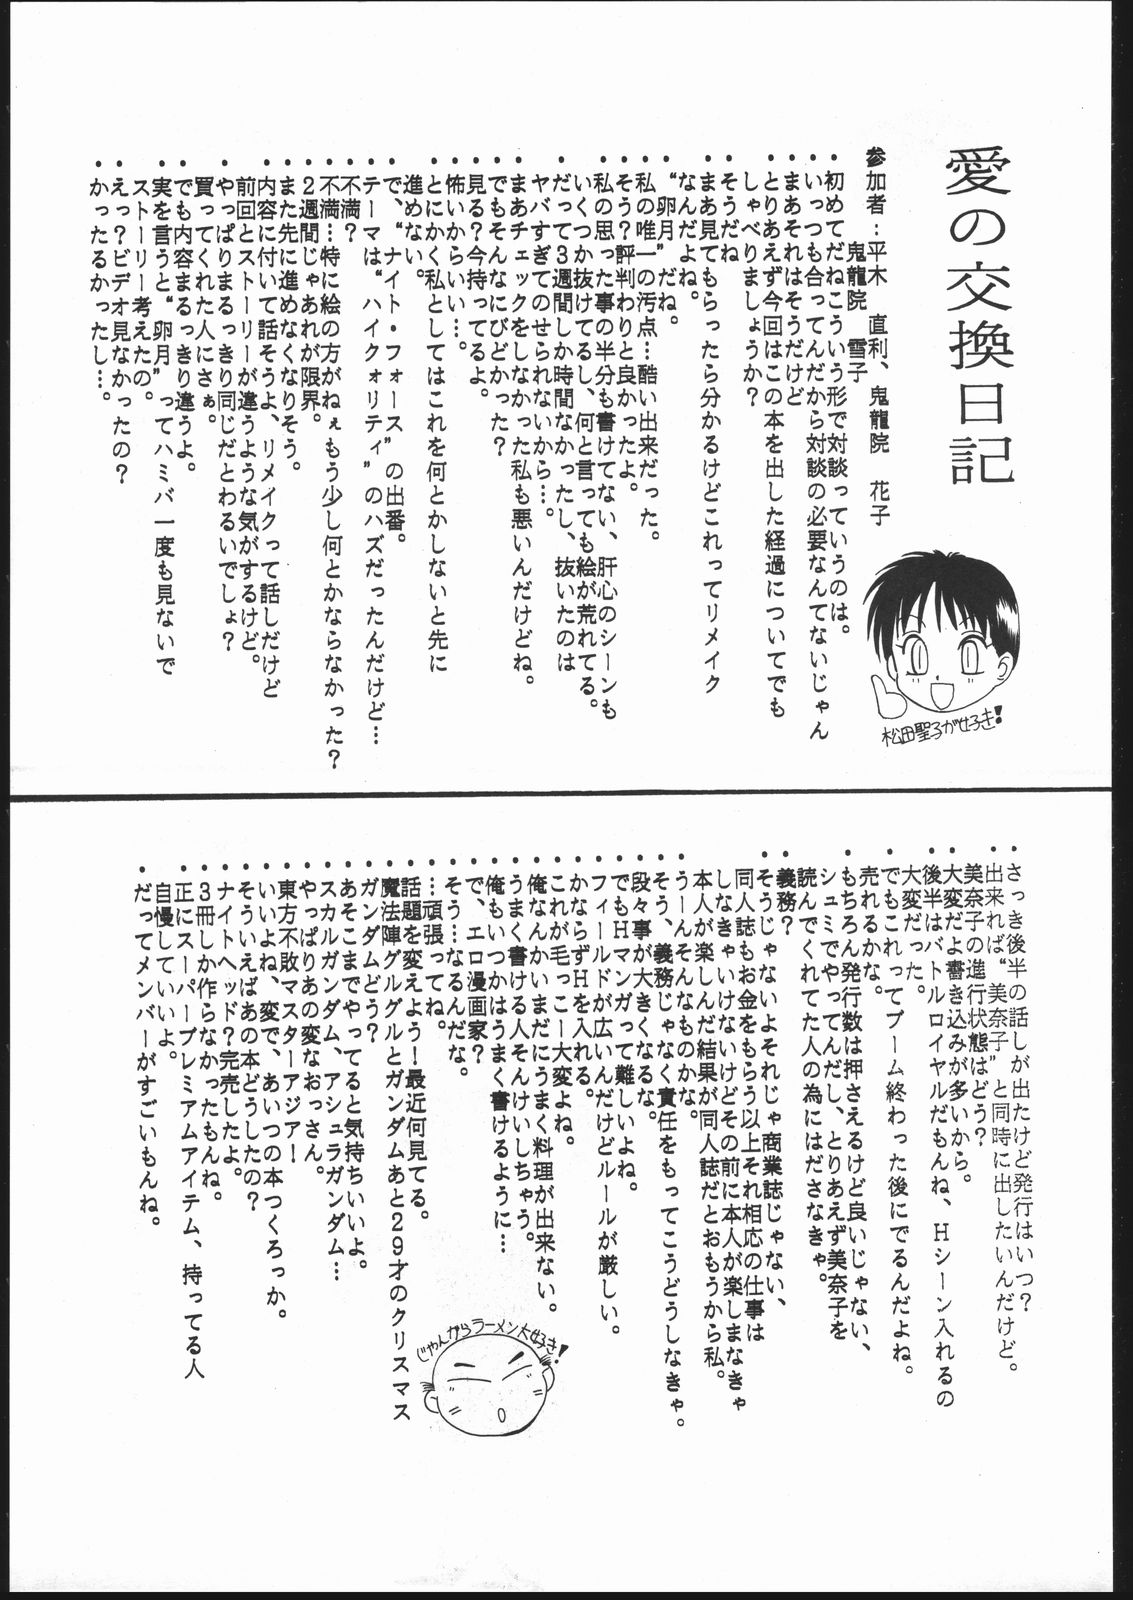 愛の交換日記
参加者：平木　直利、鬼龍院　花子
鬼龍院　雪子
・初めてだねこういう形で対談っていうのは。
・いっつも合ってんだから対談の必要なんてないじゃん
・まあそれはそうだけど
・とりあえず今回はこの本を出した経過についてでも
しゃべりましょうか？
・そうだね
・まあ見てもらったら分かるけどこれってリメイク
なんだよね。
・“卵月”だね。
・私の唯一の汚点…酷い出来だった。
・そう？評判わりと良かったよ。
・私の思った事の半分も書けてない、肝心のシーンも
いくつか抜けてるし、何と言っても絵が荒れてる。
・だって３週間しか時間なかったし、抜いたのは
ヤバすぎてのせられないから…。
・まあチェックをしなかった私も悪いんだけどね。
・でもそんなにびどかった？
・見る？今持ってるよ。
・怖いからいい…。
・とにかく私としてはこれを何とかしないと先に
進めない。
・で、“ナイト・フォース”の出番。
・テーマは“ハイクォリティ”のハズだったんだけど…
・不満？
・不満…特に絵の方がねぇもう少し何とかならなかった？
・２週間じゃあれが限界。
・また先に進めなくなりそう。
・内容に付いて話そうよ、リメイクって話しだけど
前回とストーリーが違うような気がするけど。
・やっぱりまるっきり同じだとわるいでしょ？
買ってくれた人にさぁ。
・でも内容まるっきり違うよ。
・実を言うと“卵月”ってハミバ一度も見ないで
ストーリー考えたの。
・えっ？ビデオ見なかったの？
・かったるかったし…。
松田聖子が好き！
・さっき後半の話しが出たけど発行はいつ？
・出来れば“美奈子”と同時に出したいんだけど。
・美奈子の進行状態はどう？
・大変だよ書き込みが多いから。
・後半はバトルロイヤルだもんね、Ｈシーン入れるの
大変だった。
・でもこれってブーム終わった後にでるんだよね。
売れるかな。
・もちろん発行数は押さえるけど良いじゃない、
シュミでやってんだし、とりあえず美奈子を
読んでくれてた人の為にはださなきゃ。
・義務？
・そうじゃないよそれじゃ商業誌じゃない、
同人誌もお金をもらう以上それ相応の仕事は
しなきゃいけないけどその前に本人が楽しまなきゃ
本人が楽しんだ結果が同人誌だとおもうから私。
・うーんそんなものかな。
・そう、義務じゃなく責任をもってこうどうしなきゃ。
・段々事が大きくなるな。
・でもＨマンガって難しいよね。
・フィールドが広いんだけどルールが厳しい。
・かならずＨを入れる。
・これが毛っこー大変よね。
・俺なんかいまだにうまく料理が出来ない。
・うまく書ける人そんけいしちゃう。
・俺もいつかはうまく書けるように…
・で、エロ漫画家？
・そう…なるんだな。
・…頑張ってね。
・話題を変えよう！最近何見てる。
・魔法陣グルグルとガンダムあと２９才のクリスマス
・ガンダムどう？
・あそこまでやってると気持ちいいよ。
・スカルガンダム、アシュラガンダム…
・やっぱりあの変なおっさん。
・東方不敗マスターアジアー！
・いいよね、変で、あいつの本つくろっか。
・そういえばあの本どうしたの？
・ナイトヘッド？完売したよ。
・３冊しか作らなかったもんね。
・正にスーパープレミアムアイテム、持ってる人
自慢していいよ。
・だってメンバーがすごいもんね。
じゃんがらラーメン大好き！